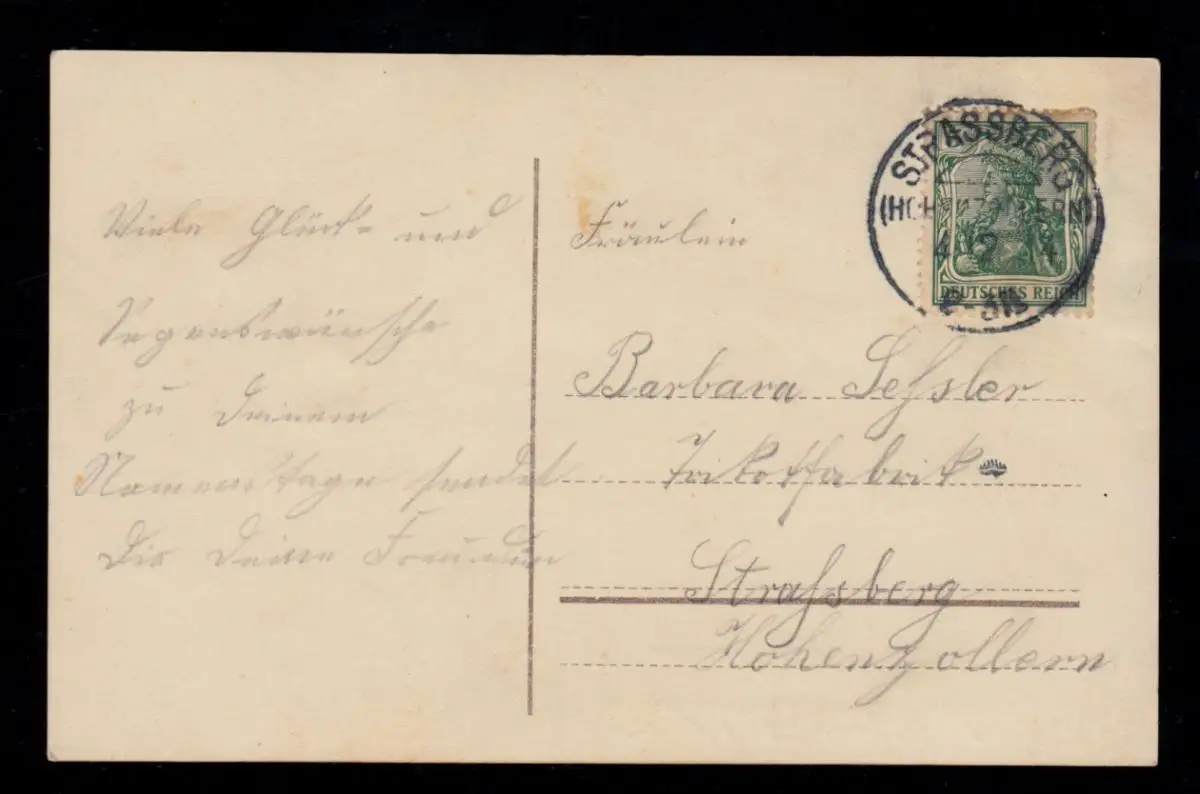 Viele Glück- und
Segenswünsche
zu Deinem
Namenstage sendet
Dir Deine Freundin
STRASSBERG
(HOHENZOLLERN)
4. 2
DEUTSCHES REICH
Fräulein
Barbara Seßler
Trikotfabrik
Straßberg
Hohenzollern